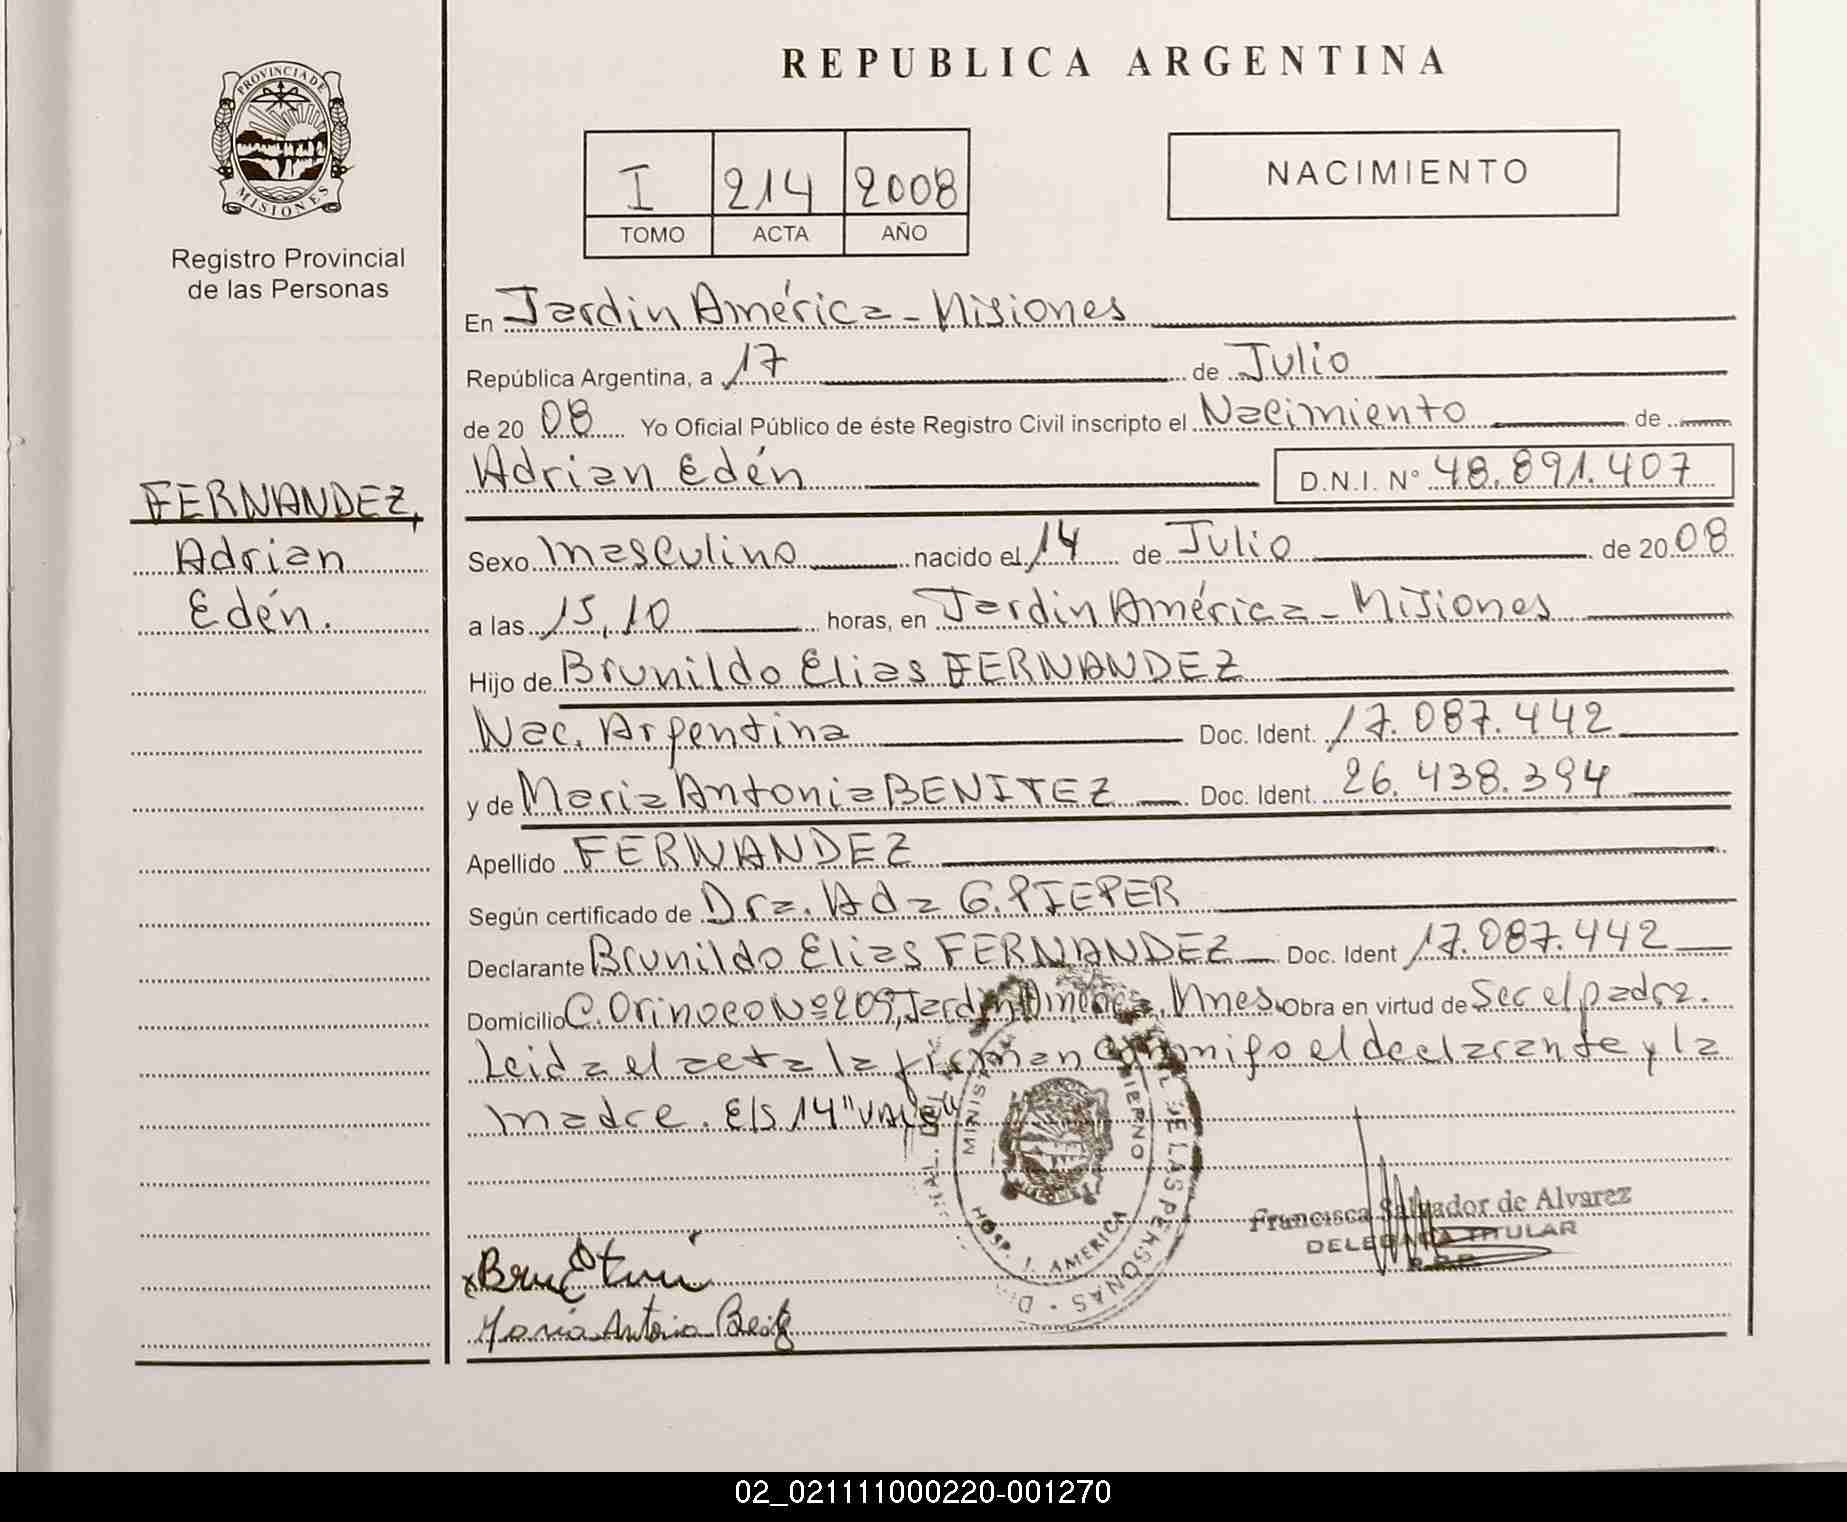 REPUBLICA ARGENTINA
PROVINCIA DE
MISIONES
Registro Provincial
de las Personas
I 214 2008
TOMO ACTA AÑO
NACIMIENTO
En Jardin América - Misiones
República Argentina, a 17 de Julio
de 20 08 Yo Oficial Público de éste Registro Civil inscripto el Nacimiento de
Adrian Edén D.N.I. N° 48.891.407
FERNANDEZ,
Adrian
Edén.
Sexo Masculino nacido el 14 de Julio de 20 08
a las 15,10 horas, en Jardin América - Misiones
Hijo de Brunildo Elias FERNANDEZ
Nac. Argentina Doc. Ident. 17.087.442
y de Maria Antonia BENITEZ Doc. Ident. 26.438.394
Apellido FERNANDEZ
Según certificado de Dra. Ada G. PIEPER
Declarante Brunildo Elias FERNANDEZ Doc. Ident 17.087.442
Domicilio C. Orinoco Nº 209, Jardin América, Mnes. Obra en virtud de Ser el padre.
Leida el acta la firman conmigo el declarante y la
madre. E/S 14 "VALE"
HOSP. J. AMERICA
DE LAS PERSONAS
Francisca Salvador de Alvarez
DELEGADA TITULAR
R.P.P.
Maria Antonia
02_021111000220-001270